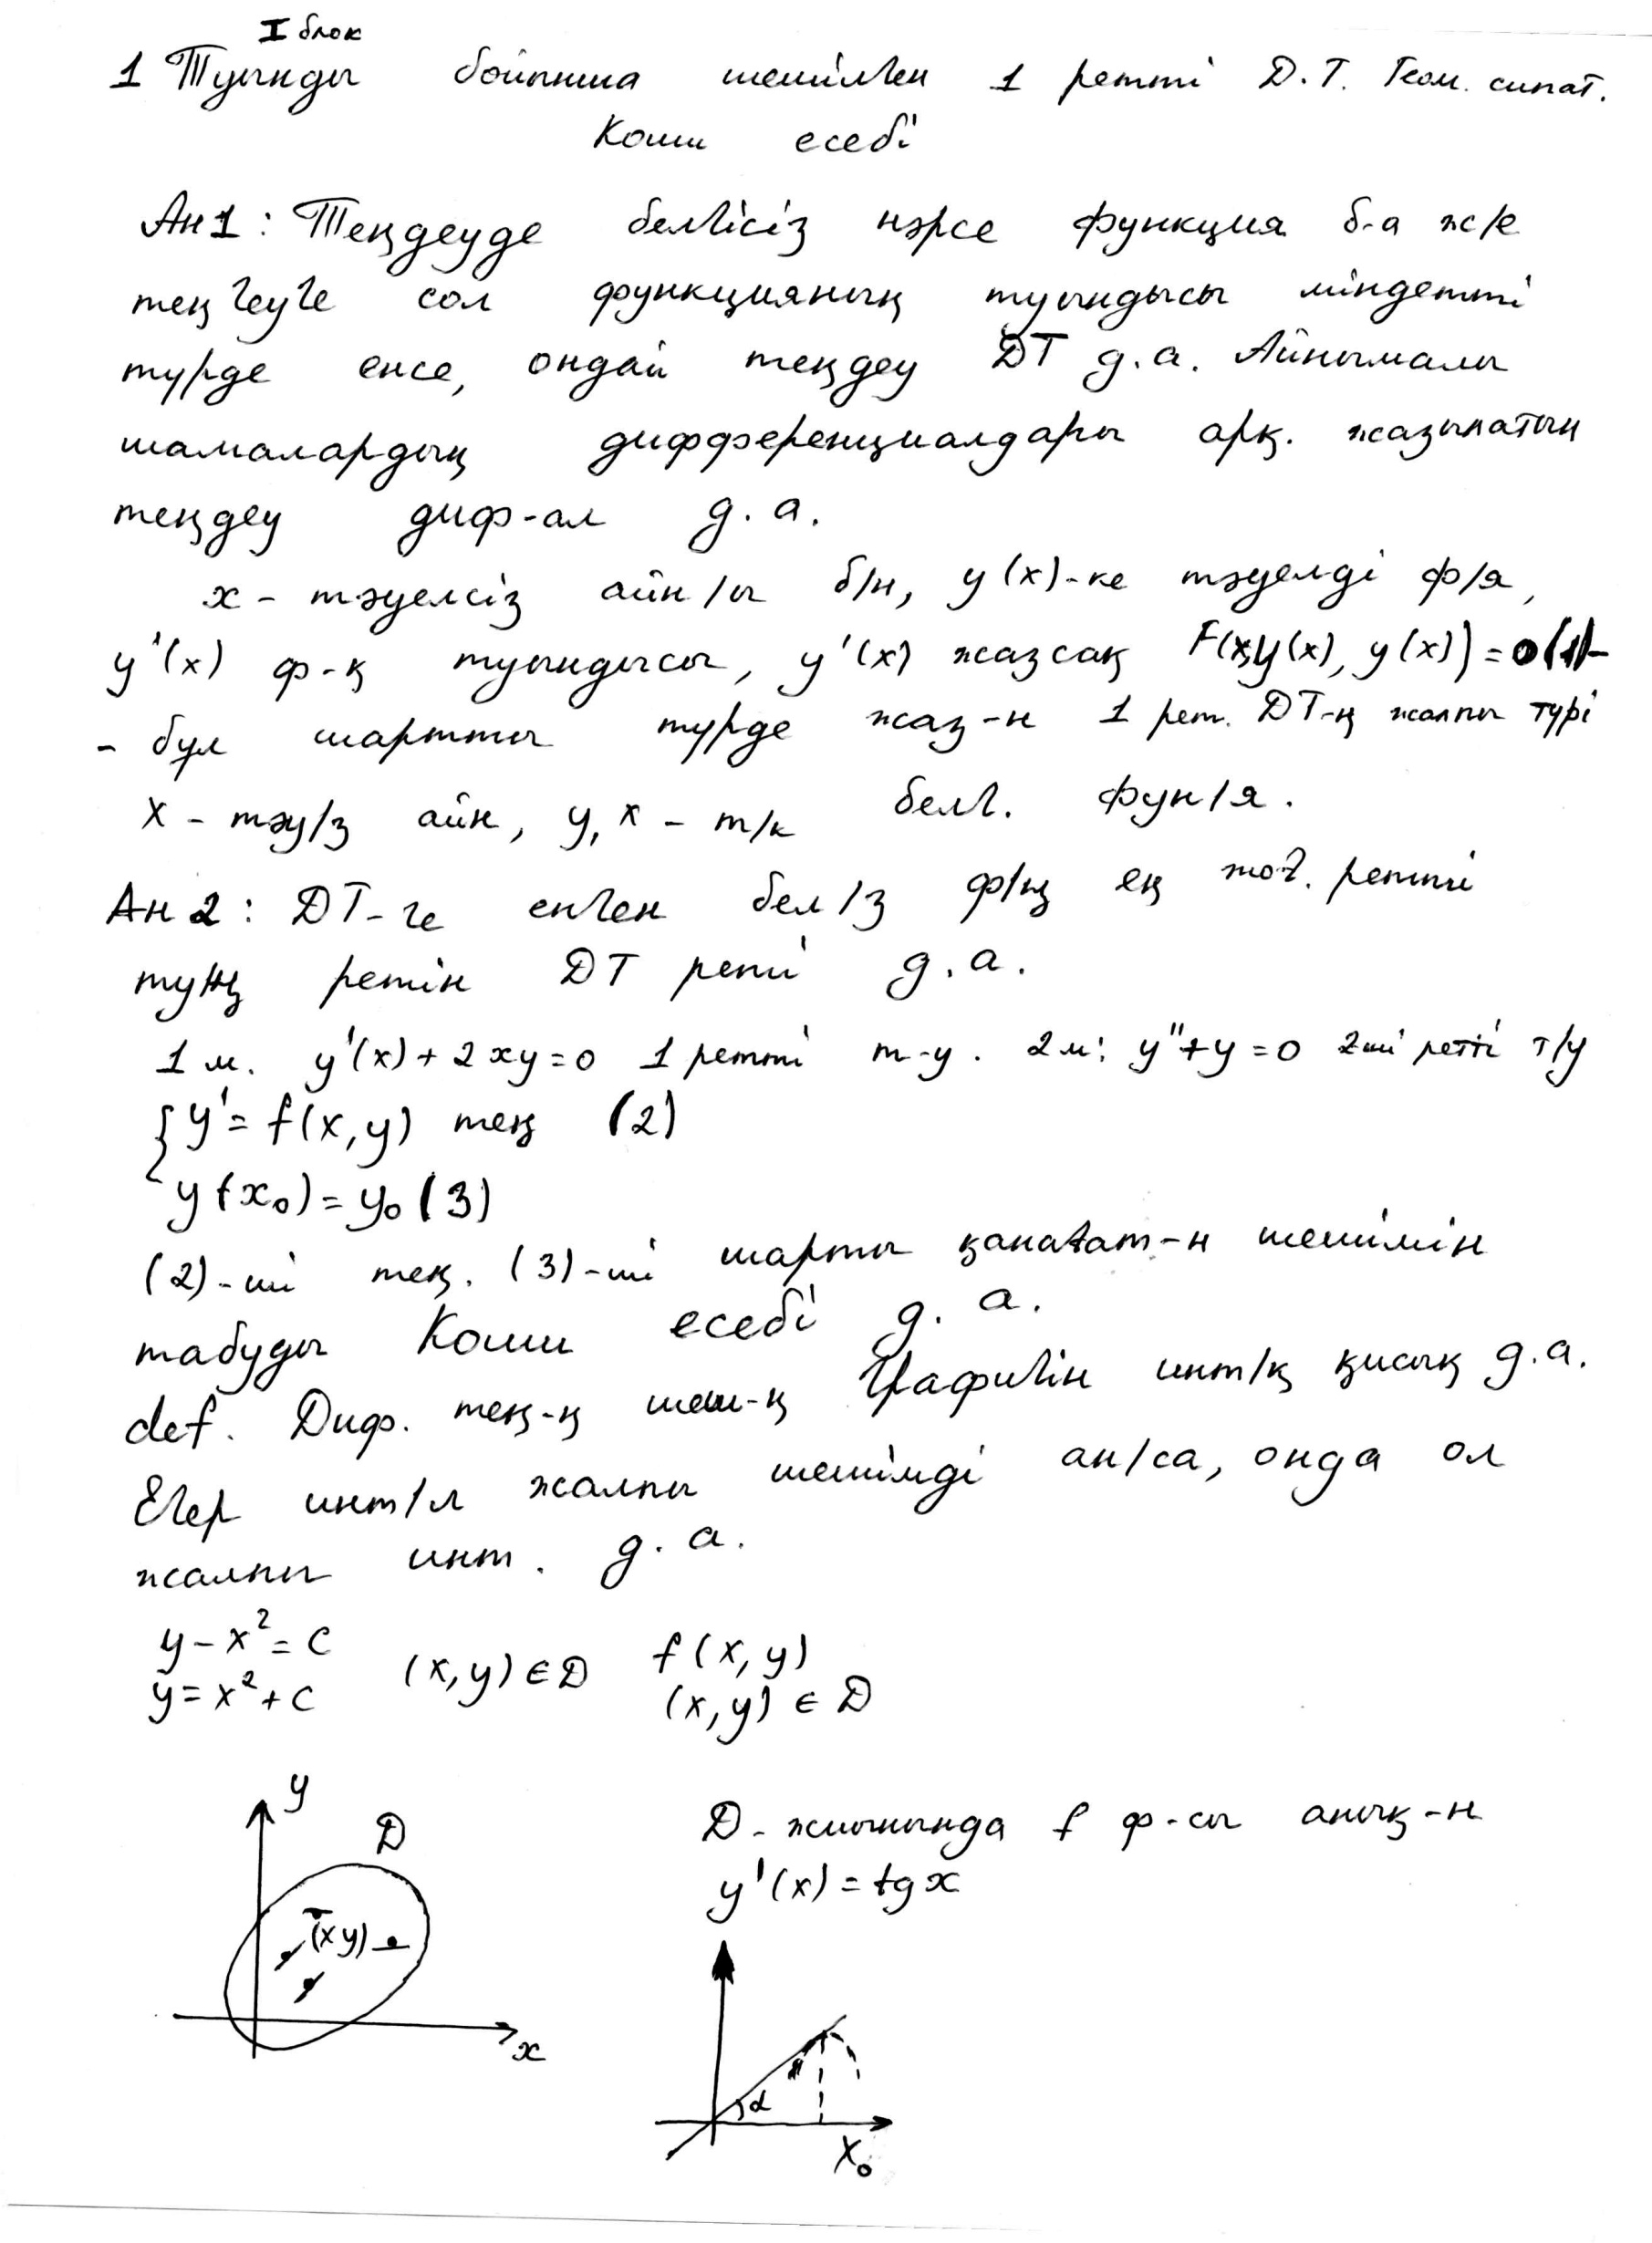 I блок
1 Туынды бойынша шешілген 1 ретті Д.Т. Геом. сипат.
Коши есебі
Ан1: Теңдеуде белгісіз нәрсе функция б-а ж/е
теңгеуге сол функцияның туындысы міндетті
түрде енсе, ондай теңдеу ДТ д.а. Айнымалы
шамалардың дифференциалдары арқ. жазылатын
теңдеу диф-ал д.а.
x - тәуелсіз айн/ы б/н, y(x)-ке тәуелді ф/я,
y'(x) ф-қ туындысы, y'(x) жазсақ F(x,y(x), y(x))=0(1)-
- бұл шартты түрде жаз-н 1 рет. ДТ-ң жалпы түрі
x - тәу/з айн, y, x - т/к белг. фун/я.
Ан2: ДТ-ге енген бел/з ф/ң ең жоғ. ретті
ту/ң ретін ДТ реті д.а.
1 м. y'(x)+2xy=0 1 ретті т-у. 2м: y''+y=0 2ші ретті т/у
{y'=f(x,y) тең (2)
y(x₀)=y₀(3)
(2)-ші тең. (3)-ші шарты қанағат-н шешімін
табуды Коши есебі д.а.
def. Диф. тең-ң шеш-ң графигін инт/қ қисық д.а.
Егер инт/л жалпы шешімді ан/са, онда ол
жалпы инт. д.а.
y-x²=c
y=x²+c (x,y)∈D f(x,y)
(x,y)∈D
y
D
(xy)
x
D-жиынында f ф-сы анық-н
y'(x)=tgx
α
x₀